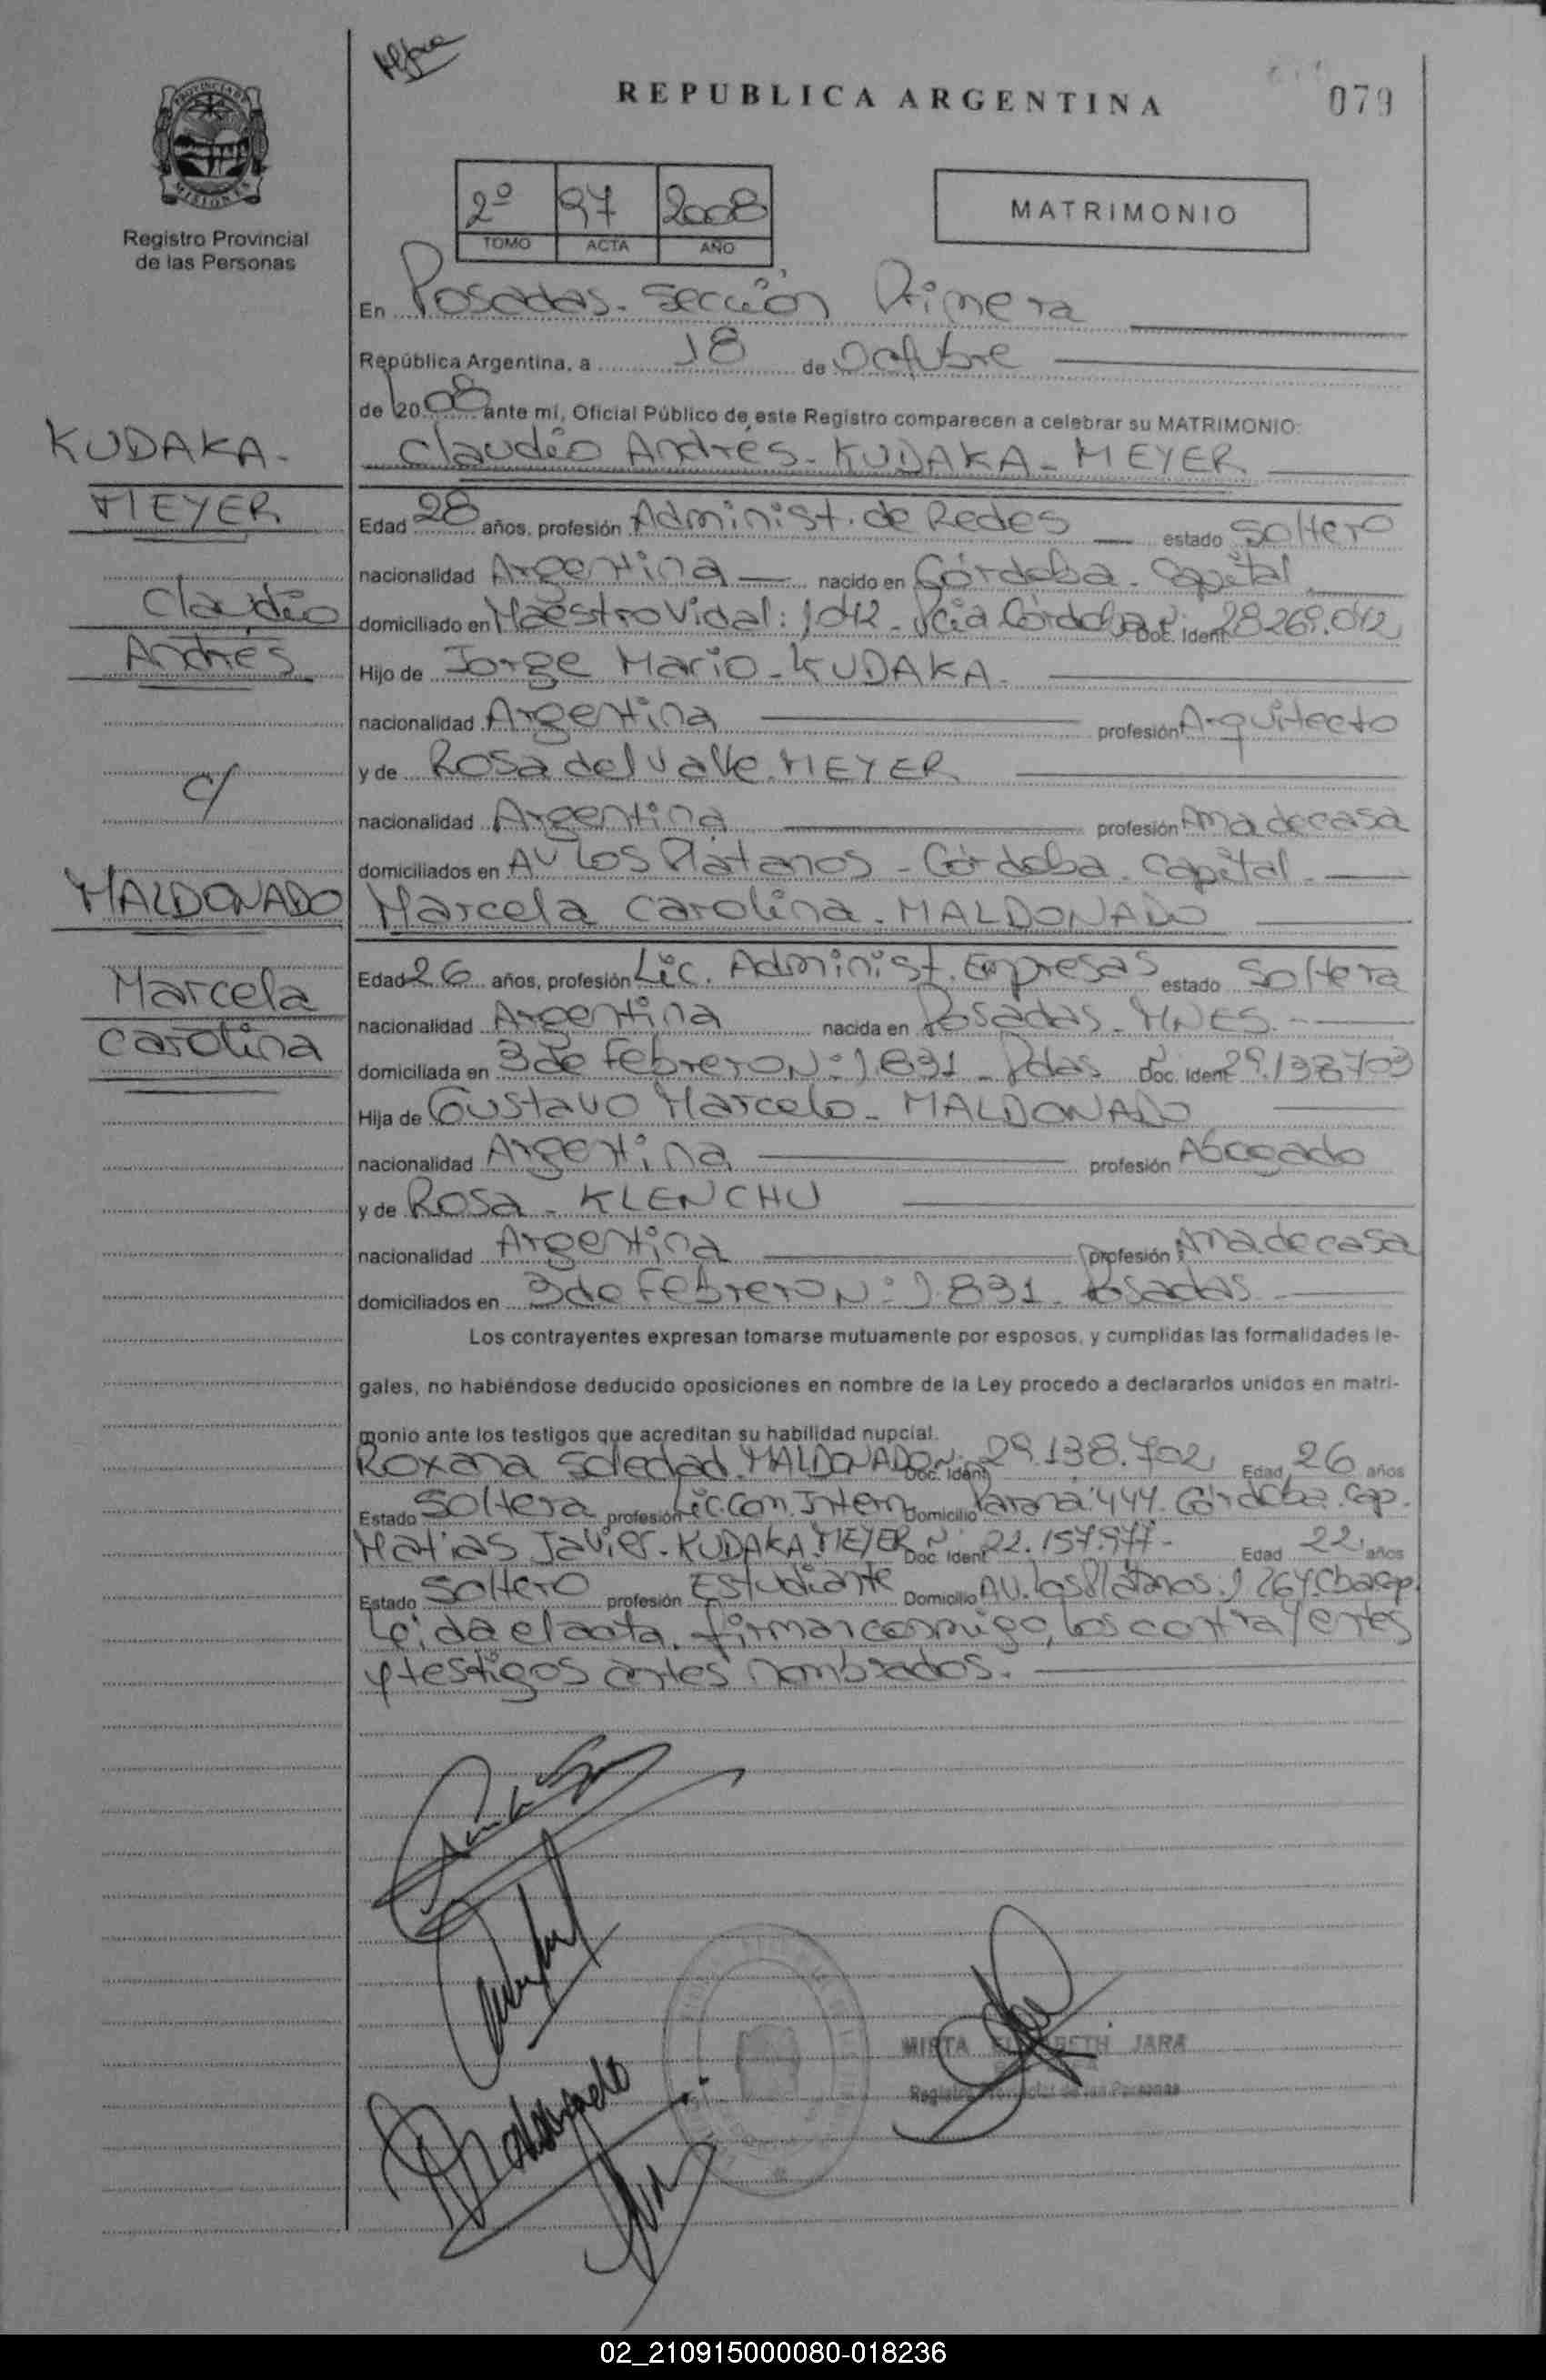 REPUBLICA ARGENTINA
079
PROVINCIA DE
MISIONES
Registro Provincial
de las Personas
2º 97 2008
TOMO ACTA AÑO
MATRIMONIO
En Posadas. Sección Primera
República Argentina, a 18 de Octubre
de 2008 ante mí, Oficial Público de este Registro comparecen a celebrar su MATRIMONIO:
Claudio Andrés - KUDAKA - MEYER
Edad 28 años, profesión Administ. de Redes estado Soltero
nacionalidad Argentina nacido en Córdoba. Capital
domiciliado en Maestro Vidal: 1042 - Vcia Córdoba Doc. Ident. 28269.042
Hijo de Jorge Mario - KUDAKA.
nacionalidad Argentina profesión Arquitecto
y de Rosa del Valle. MEYER
nacionalidad Argentina profesión Ama de casa
domiciliados en AV Los Plátanos - Córdoba. Capital.
Marcela Carolina. MALDONADO
Edad 26 años, profesión Lic. Administ. Empresas estado Soltera
nacionalidad Argentina nacida en Posadas. MNES.
domiciliada en 3 de Febrero Nº: 1.831 - Pdas Doc. Ident. 29.138703
Hija de Gustavo Marcelo - MALDONADO
nacionalidad Argentina profesión Abogado
y de Rosa - KLENCHU
nacionalidad Argentina profesión Ama de casa
domiciliados en 3 de Febrero Nº: 1.831. Posadas
Los contrayentes expresan tomarse mutuamente por esposos, y cumplidas las formalidades le-
gales, no habiéndose deducido oposiciones en nombre de la Ley procedo a declararlos unidos en matri-
monio ante los testigos que acreditan su habilidad nupcial.
Roxana Soledad. MALDONADO Doc. Ident. 29.138.702 Edad 26 años
Estado Soltera profesión Lic. Com. Intern. Domicilio Paraná: 444. Córdoba. Cap.
Matias Javier. KUDAKA MEYER Doc. Ident. 22.157.977 - Edad 22 años
Estado Soltero profesión Estudiante Domicilio AV. Los Plátanos: 1264 Cba Cap.
Leída el acta. firman conmigo, los contrayentes
y testigos antes nombrados.
KUDAKA -
MEYER
Claudio
Andrés
c/
MALDONADO
Marcela
Carolina
Maldonado
MIRTA ELIZABETH JARA
Registro Provincial de las Personas
02_210915000080-018236